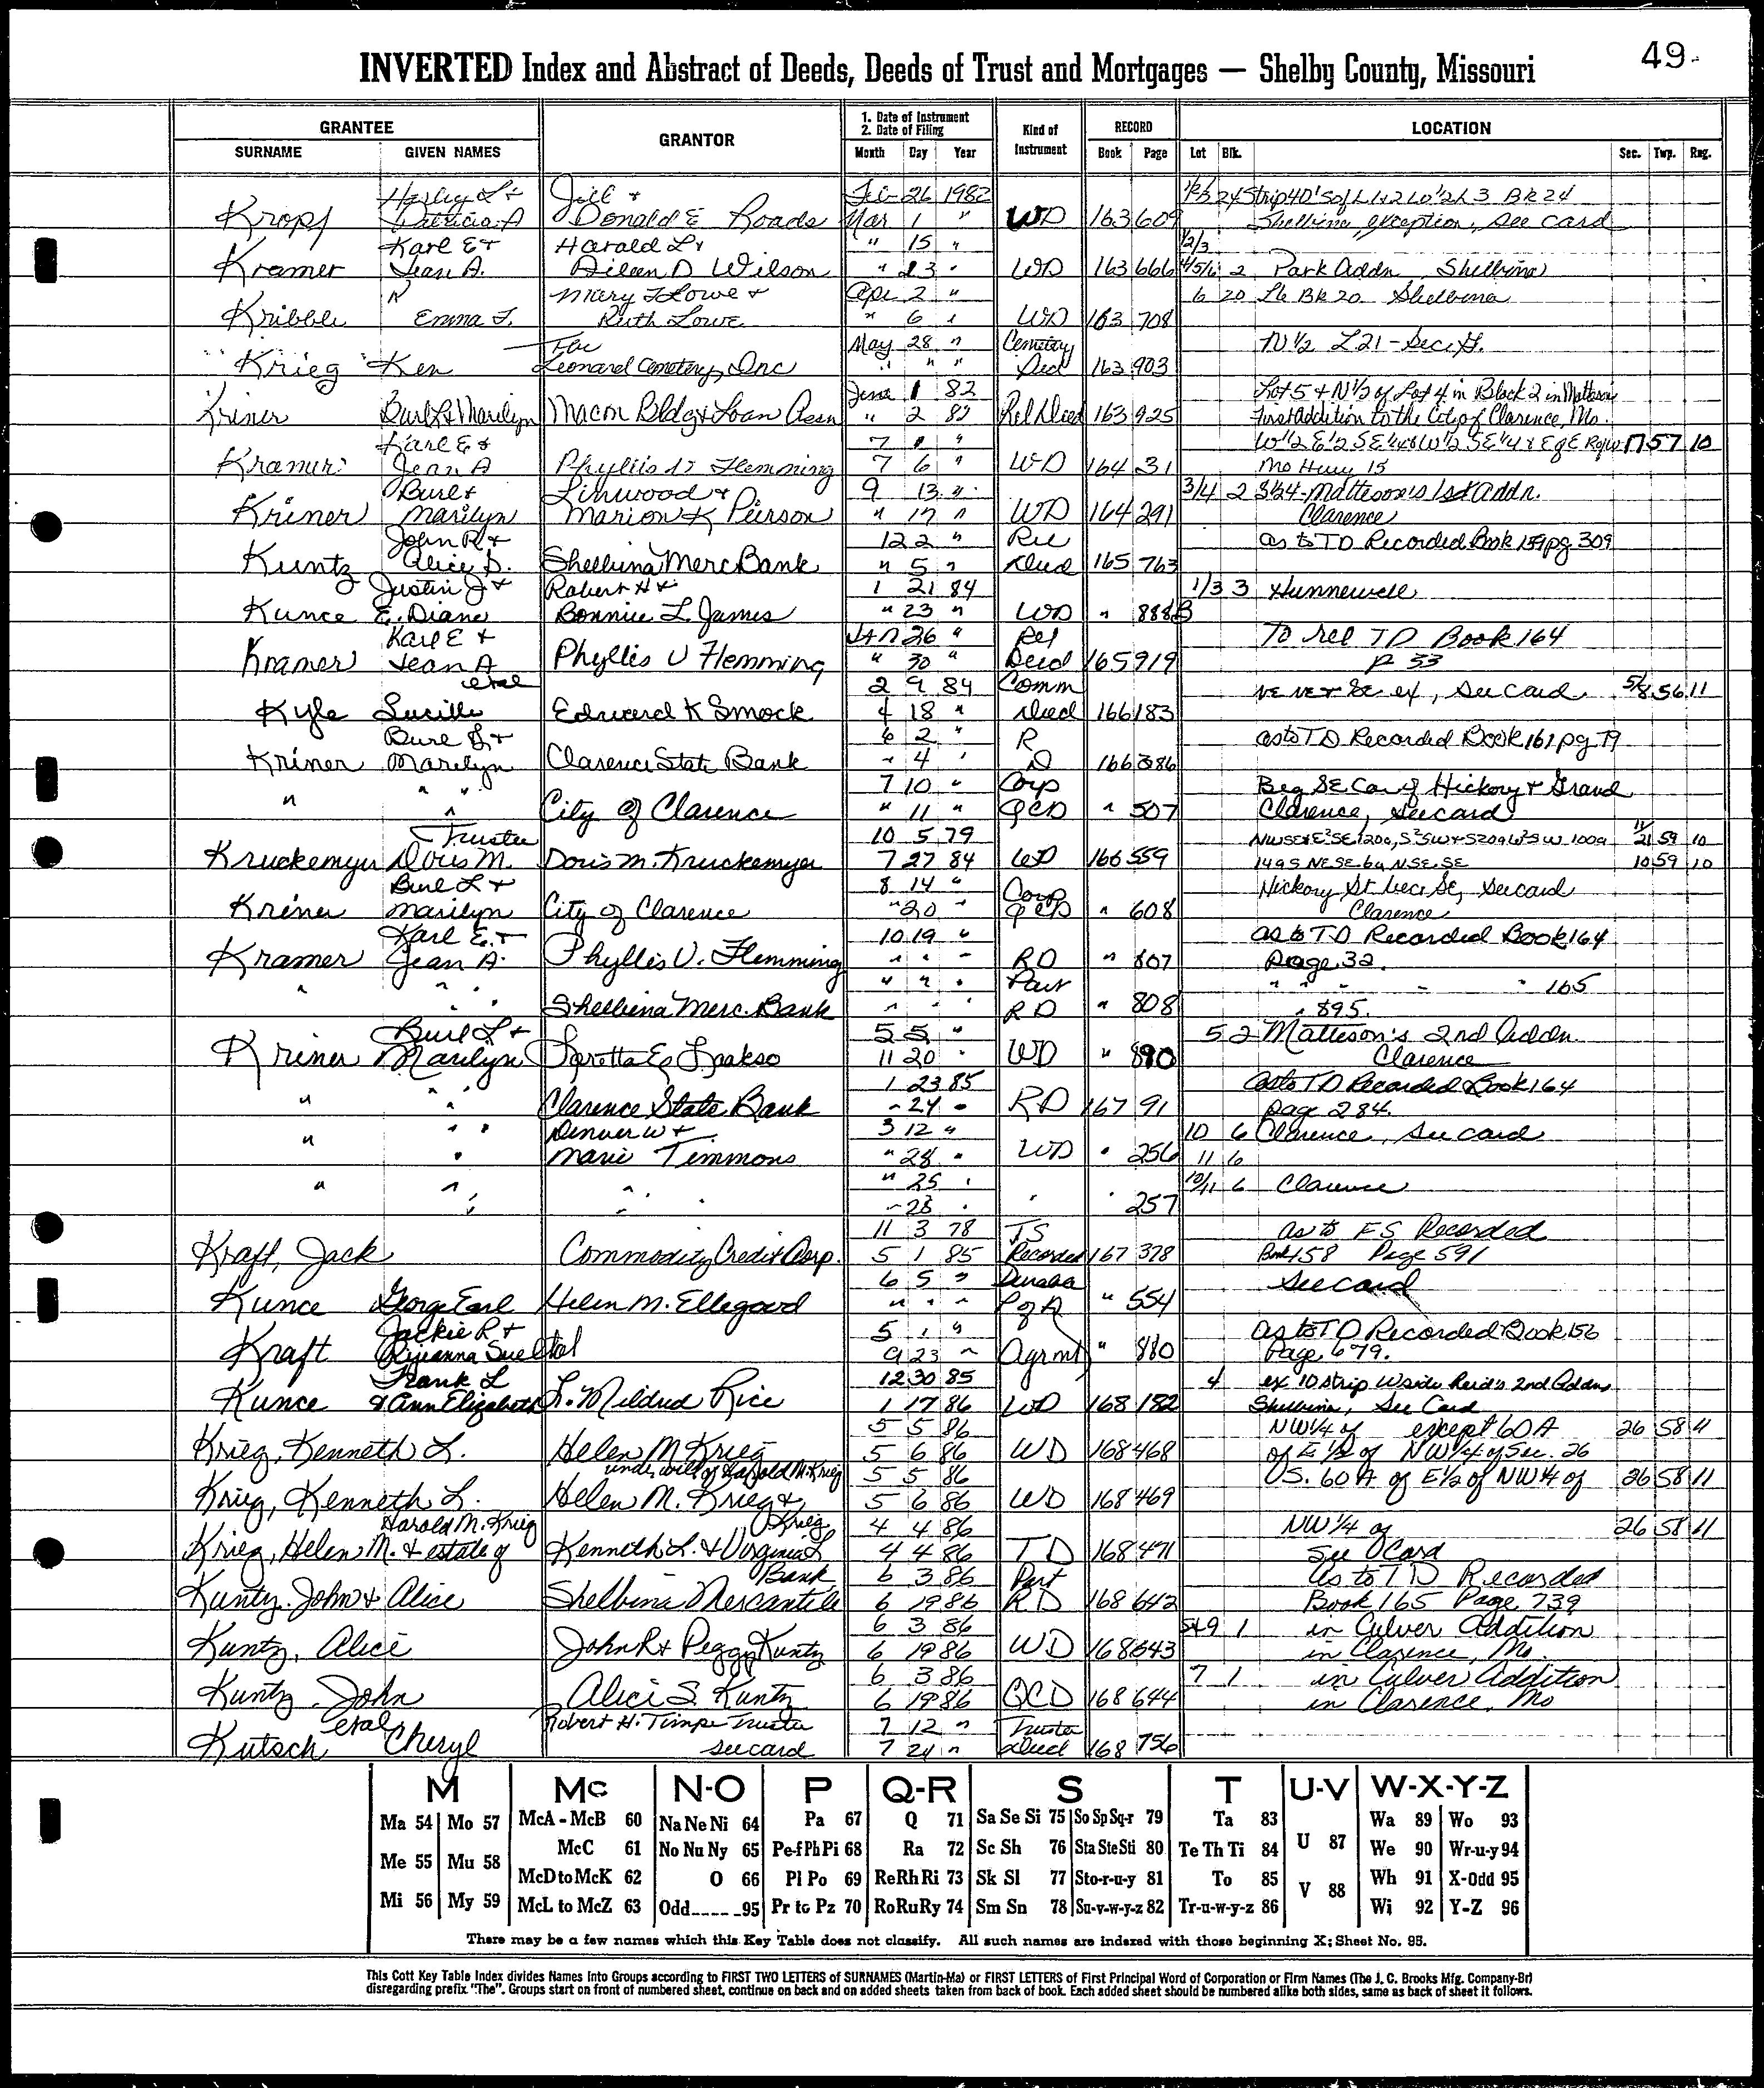 49
INVERTED Index and Abstract of Deeds, Deeds of Trust and Mortgages — Shelby County, Missouri
GRANTEE GRANTOR 1. Date of Instrument 2. Date of Filing Kind of Instrument RECORD LOCATION
SURNAME GIVEN NAMES Month Day Year Book Page Lot Blk. Sec. Twp. Rng.
Jill & 26 1982
Kropf Patricia A Donald E Roads Mar 1 " WD 163 609 Shelbina, exception, see card
Karl E & Harald L & " 15 " 1/2/3
Kramer Jean A. Aileen D Wilson " 23 " WD 163 666 4/5/6 2 Park Addn Shelbina
Mary F Lowe & Apr 2 " 6 20 L6 Bk 20 Shelbina
Kribbe Emma F. Ruth Lowe " 6 " WD 163 708
The May 28 " Cemetery N 1/2 L 21 - Sec. H.
Krieg Ken Leonard Cemetery, Inc " " " Deed 163 903
June 1 82 Lot 5 & N 1/2 of Lot 4 in Block 2 in Mattesons
Kriner Burl L & Marilyn Macon Bldg & Loan Assn " 2 82 Rel Deed 163 925 First Addition to the City of Clarence, Mo.
Karl E & 7 1 " W 1/2 E 1/2 SE 1/4 & W 1/2 SE 1/4 & E of E Row 17 57 10
Kramer Jean A Phyllis V Flemming 7 6 " WD 164 31 Mo Hwy 15
Burl & Linwood & 9 13 " 3/4 2 Matteson's 1st Addn.
Kriner Marilyn Marion K Pierson " 17 " WD 164 291 Clarence
John R & 12 2 " Rel as to TD Recorded Book 159 pg 309
Kuntz Alice S. Shelbina Merc Bank " 5 " Deed 165 763
Justin J & Robert H & 1 21 84 1/3 3 Hunnewell
Kunce E. Diane Bonnie L James " 23 " WD " 888B
Karl E & Jan 26 " Rel To rel TD Book 164
Kramer Jean A Phyllis V Flemming " 30 " Deed 165 919 P 33
etal 2 9 84 Comm NE NE & SE ex, see card 5/8 56 11
Kyle Lucille Edward K Smock 4 18 " Deed 166 183
Burl L & 6 2 " R as to TD Recorded Book 161 pg 79
Kriner Marilyn Clarence State Bank " 4 " D 166 386
7 10 " Corp Beg SE Cor of Hickory & Grand
" " " City of Clarence " 11 " QCD " 507 Clarence, see card
Trustee 10 5 79 11/21 59 10
Kruckemyer Doris M. Doris M. Kruckemyer 7 27 84 WD 166 559 10 59 10
Burl L & 8 14 " Corp Hickory St see card
Kriner Marilyn City of Clarence " 20 " QCD " 608 Clarence
Karl E. & 10 19 " as to TD Recorded Book 164
Kramer Jean A. Phyllis V. Flemming " " " RD " 807 Page 32.
" " " " " " Part " " " " " 165
Shelbina Merc. Bank " " " RD " 808 " 895.
Burl L & 5 5 " 5 2 Matteson's 2nd Addn.
Kriner Marilyn Loretta E. 11 20 " WD " 890 Clarence
1 23 85 as to TD Recorded Book 164
" " " Clarence State Bank " 24 " RD 167 91 Page 284.
" " " Denver W & 3 12 " 10 6 Clarence, see card
" Marie Timmons " 28 " WD " 256 11 6
" " " " 25 " 10/11 6 Clarence
" " " " 28 " " " 257
11 3 78 as to FS Recorded
Kraft, Jack Commodity Credit Corp. 5 1 85 Recorded 167 378 Book 158 Page 591
6 5 " Durable see card
Kunce George Earl Helen M. Ellegood " " " P of A " 554
Jackie R & 5 1 " as to TD Recorded Book 156
Kraft Sue etal 9 23 " Agrmt " 880 Page 679.
Frank L 12 30 85 4 ex 10 strip W side Reid's 2nd Addn
Kunce & Ann Elizabeth L. Mildred Rice 1 17 86 WD 168 182 Shelbina, See Card
5 5 86 NW 1/4 of except 60 A 26 58 11
Krieg, Kenneth L. Helen M Krieg 5 6 86 WD 168 468 of E 1/2 of NW 1/4 of Sec. 26
under will of Harold M. Krieg 5 5 86 U.S. 60 A of E 1/2 of NW 1/4 of 26 58 11
Krieg, Kenneth L. Helen M. Krieg & 5 6 86 WD 168 469
Harold M. Krieg Krieg 4 4 86 NW 1/4 of 26 58 11
Krieg, Helen M. & estate of Kenneth L. & Virginia L 4 4 86 TD 168 471 See Card
Bank 6 3 86 Part as to TD Recorded
Kuntz, John & Alice Shelbina Mercantile 6 19 86 RD 168 642 Book 165 Page 739
6 3 86 5&9 1 in Culver Addition
Kuntz, Alice John R & Peggy Kuntz 6 19 86 WD 168 643 in Clarence, Mo.
6 3 86 7 1 in Culver Addition
Kuntz John Alice S. Kuntz 6 19 86 QCD 168 644 in Clarence, Mo
etal Robert H. Timpe Trustee 7 12 " Trustee
Kutsch Cheryl see card 7 21 " Deed 168 756
M Mc N-O P Q-R S T U-V W-X-Y-Z
Ma 54 Mo 57 McA - McB 60 Na Ne Ni 64 Pa 67 Q 71 Sa Se Si 75 So Sp Sq-r 79 Ta 83 Wa 89 Wo 93
McC 61 No Nu Ny 65 Pe-f Ph Pi 68 Ra 72 Sc Sh 76 Sta Ste Sti 80 Te Th Ti 84 U 87 We 90 Wr-u-y 94
Me 55 Mu 58 McD to McK 62 O 66 Pl Po 69 Re Rh Ri 73 Sk Sl 77 Sto-r-u-y 81 To 85 V 88 Wh 91 X-Odd 95
Mi 56 My 59 McL to McZ 63 Odd---- -95 Pr to Pz 70 Ro Ru Ry 74 Sm Sn 78 Su-v-w-y-z 82 Tr-u-w-y-z 86 Wi 92 Y-Z 96
There may be a few names which this Key Table does not classify. All such names are indexed with those beginning X; Sheet No. 95.
This Cott Key Table Index divides Names into Groups according to FIRST TWO LETTERS of SURNAMES (Martin-Ma) or FIRST LETTERS of First Principal Word of Corporation or Firm Names (The J. C. Brooks Mfg. Company-Br)
disregarding prefix "The". Groups start on front of numbered sheet, continue on back and on added sheets taken from back of book. Each added sheet should be numbered alike both sides, same as back of sheet it follows.